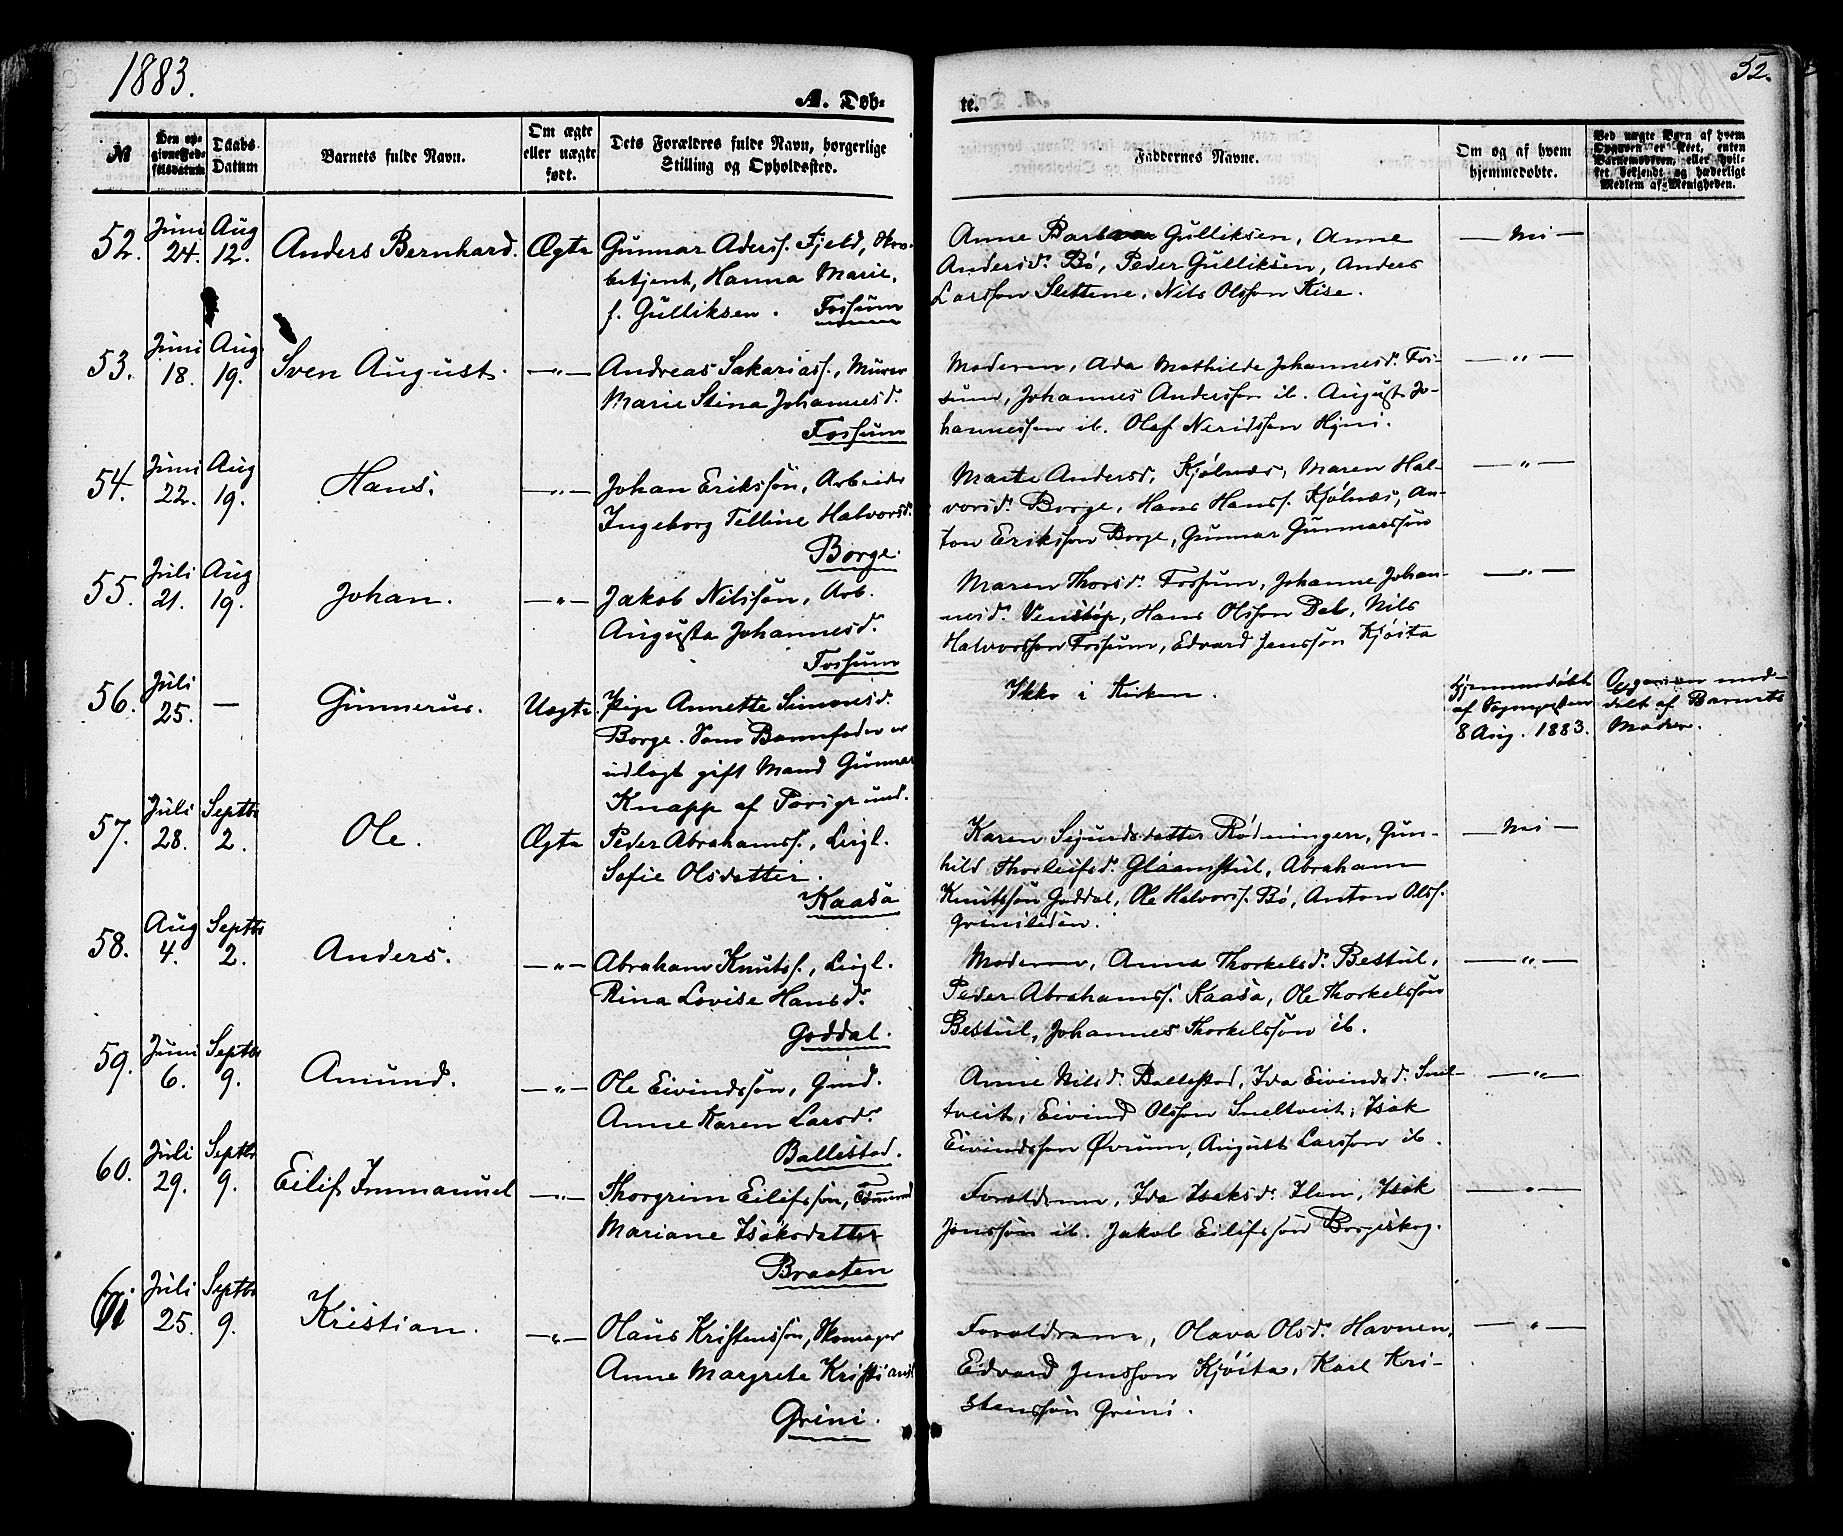 1883.
52.
A. Døb-
te.
№
Den opgivne Fødselsdatum
Daabs Datum
Barnets fulde Navn.
Om ægte eller uægte født.
Dets Forældres fulde Navn, borgerlige Stilling og Opholdssted.
Faddernes Navne.
Om og af hvem hjemmedøbte.
Ved uægte Børn af hvem Opgaven er skeet, enten Barnemoderen, eller hvilket bekjendt og hæderligt Medlem af Menigheden.
52. Juni 24. Aug 12. Anders Bernhard. Ægte Gunnar Aderss. Fjeld,
betjent, Hanna Marie,
f. Gulliksen. Fossum
Anne Barbara Gulliksen, Anne
Andersd. Bø, Peder Gulliksen, Anders
Larsson Slettene, Nils Olsson Aise.
— Nei —
53. Juni 18. Aug. 19. Sven August. —"— Andreas Sakariass., Murer
Marie Stina Johannesd.
Fossum
Moderen, Ada Mathilde Johannesd. Fos-
sum, Johannes Andersson ib. August Jo-
hannesson ib. Olaf Neridsson Hjni.
—"—
54. Juni 22. Aug 19. Hans. —"— Johan Eriksson, Arbeider
Ingeborg Telline Halvorsd.
Borge.
Marte Andersd. Kjølnæs, Maren Hal-
vorsd. Borge, Hans Hanss. Kjølnæs, An-
ton Eriksson Borge, Gunnar Gunnarsson
—"—
55. Juli 21. Aug 19. Johan. —"— Jakob Nilsson, Arb.
Augusta Johannesd.
Fossum
Maren Thorsd. Fossum, Johanne Johan-
nesd. Venstøp, Hans Olsson Dal, Nils
Halvorsson Fossum, Edvard Jensson Kjøita
—"—
56. Juli 25. — Gunnerus. Uægte Pige Annette Simonsd.
Borge. Som Barnefader er
udlagt gift Mand Gunnar
Knapp af Porsgrund.
Ikke i Kirken.
Hjemmedøbt
af Sognepresten
8 Aug. 1883.
Opgaven med-
delt af Barnets
Moder.
57. Juli 28. Septbr 2. Ole. Ægte Peder Abrahamss., Leigl.
Sofie Olsdatter.
Kaasa
Karen Sejurdsdatter Rødningen, Gun-
hild Thorleifsd. Glaamstul, Abraham
Knutsson Goddal, Ole Halvorss. Bø, Anton Olss.
Griniledın.
— Nei —
58. Aug 4. Septbr 2. Anders. —"— Abraham Knutss., Leigl.
Rina Lovise Hansd.
Goddal.
Moderen, Anna Thorkelsd. Bestul,
Peder Abrahamss. Kaasa, Ole Thorkelsson
Bestul, Johannes Thorkelsson ib.
—"—
59. Juni 6. Septbr 9. Amund. —"— Ole Eivindsson, Gmd.
Anne Karen Larsd.
Ballestad.
Anne Nilsd. Ballestad, Ida Eivindsd. Snel-
tveit, Eivind Olsson Sneltveit, Isak
Eivindsson Øvrum, August Larsson ib.
—"—
60. Juli 29. Septbr 9. Eilif Immanuel —"— Thorgrim Eilifsson, Tømmermd
Mariane Isaksdatter
Braaten
Forældrene, Ida Isaksd. Ilen, Isak
Jonsson ib. Jakob Eilifsson Borgeskog.
—"—
61 Juli 25. Septbr 9. Kristian. —"— Klaus Kristensson, Skomager
Anne Margrete Kristiansd.
Grini.
Forældrene, Olava Olsd. Havnen,
Edvard Jensson Kjøita, Karl Kri-
stensson Grini.
—"—